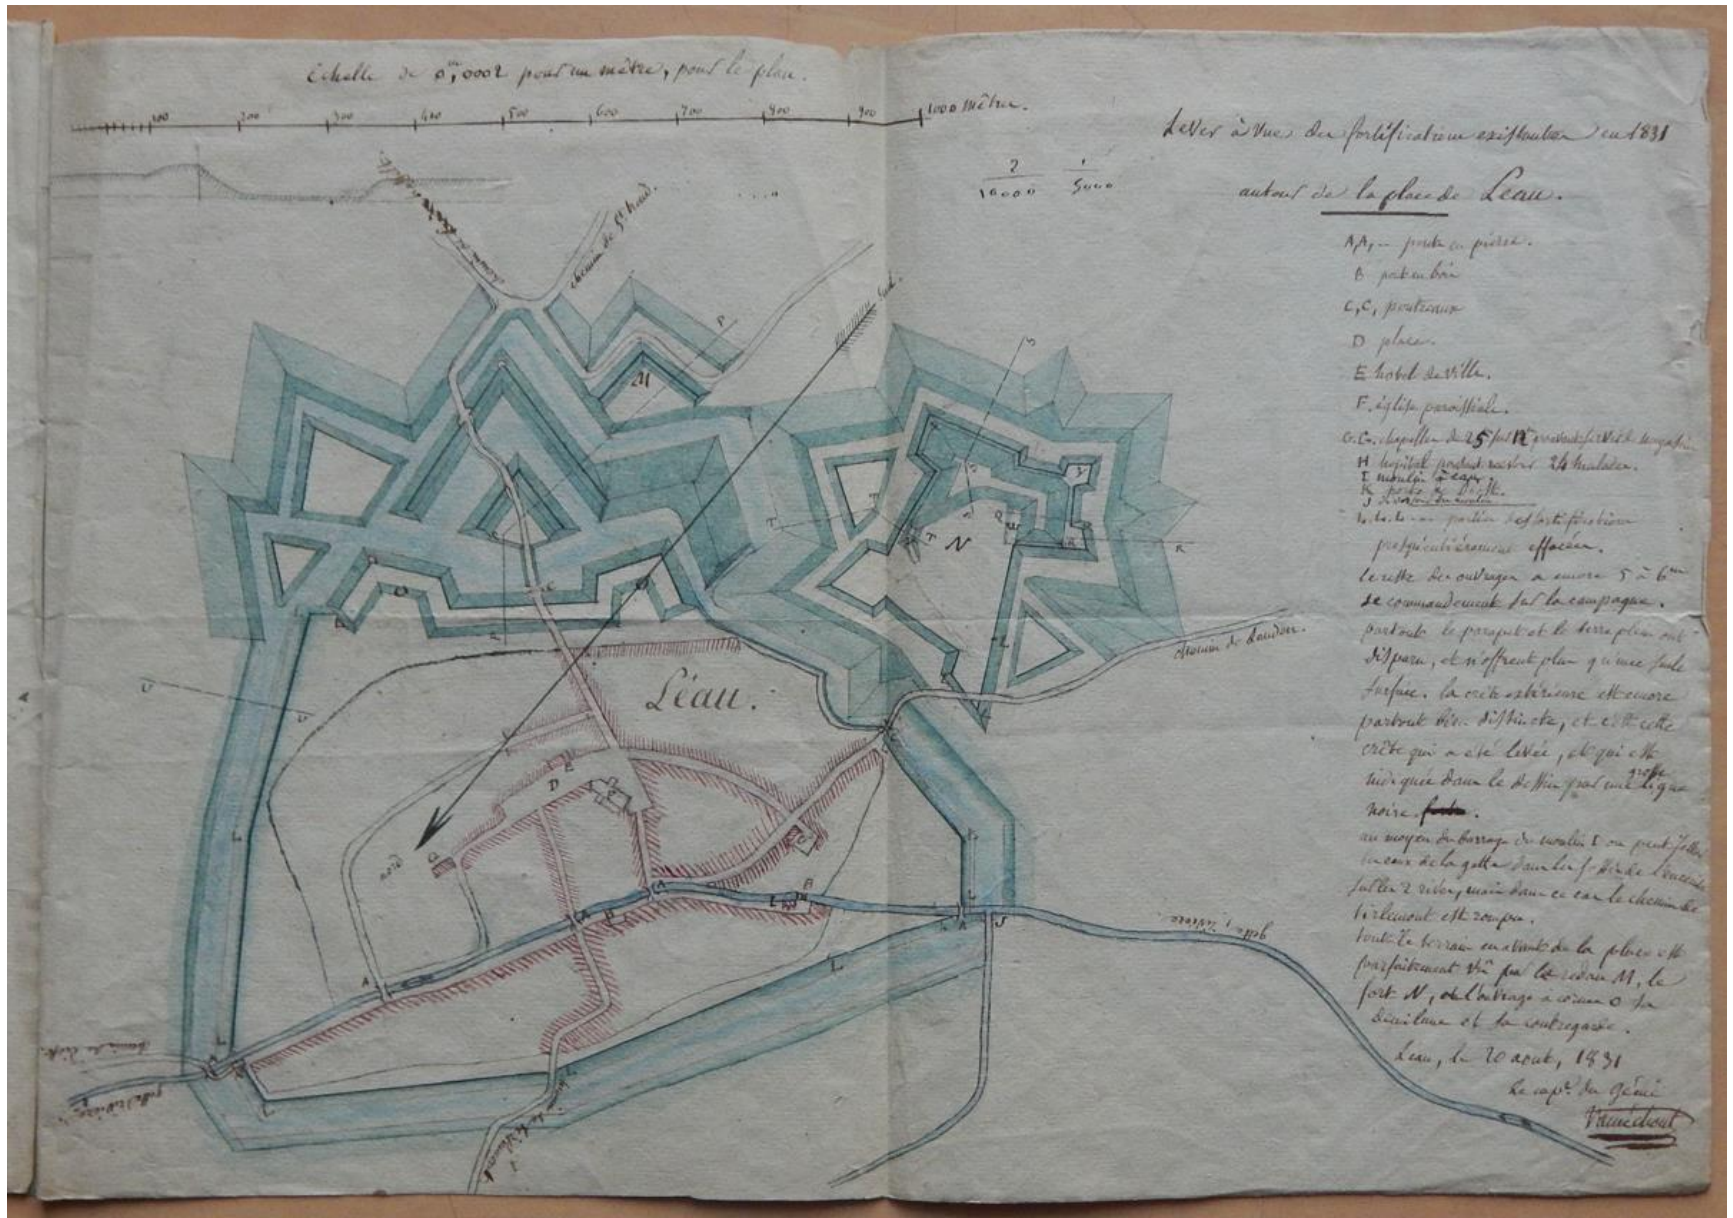 Echelle de 0,m0002 pour un mètre, pour le plan.
100 200 300 400 500 600 700 800 900 1000 mètres.
2/10000 1/5000
Lever à vue des fortifications existantes en 1831
autour de la place de Léau.
A, A, -- ponts en pierre.
B pont en bois
C, C, ponceaux
D place.
E hotel de ville.
F. église paroissiale.
G.G. chapelles de 25 sur 12 pouvant servir de magasin
H hopital pouvant recevoir 24 malades.
I moulin à eau
L.L.L. -- parties des fortifications
presqu'entièrement effacées.
le reste des ouvrages a encore 5 à 6m
de commandement sur la campagne.
partout le parapet et le terreplein ont
disparu, et n'offrent plus qu'une seule
surface. la crête extérieure est encore
partout bien distincte, et c'est cette
crête qui a été levée, et qui est
indiquée dans le dessin par une grosse ligne
noire.
au moyen du barrage du moulin I on peut jetter
les eaux de la gette dans les fossés de l'enceinte
sur les 2 rives, mais dans ce cas le chemin de
tirlemont est rompu.
tout le terrain en avant de la place est
parfaitement vu par le redan M, le
fort N, et l'ouvrage à corne O sa
demilune et sa contregarde.
Léau, le 20 aout, 1831
Le cape. du Génie
chemin de St. trond.
sud.
M
N
O
O
Léau.
chemin de Landen.
D
E
nord
gette, rivière.
gette rivière
chemin de tirlemont